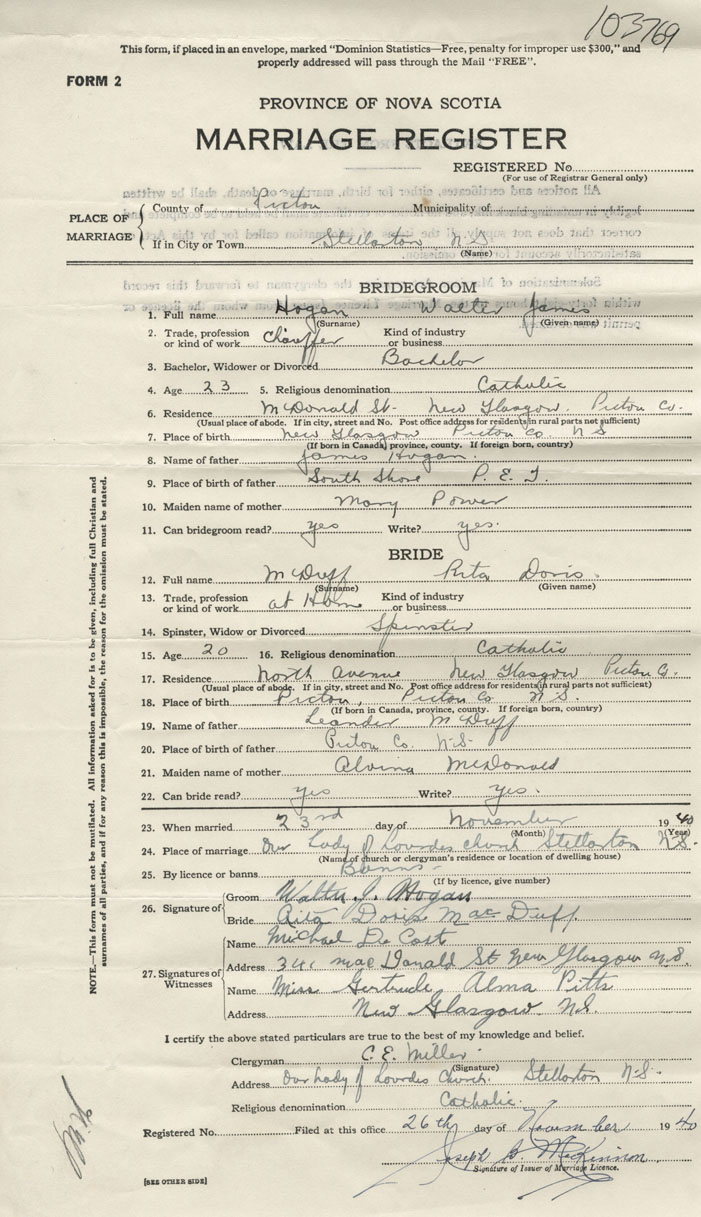 103769
This form, if placed in an envelope, marked "Dominion Statistics—Free, penalty for improper use $300," and
properly addressed will pass through the Mail "FREE".
FORM 2
PROVINCE OF NOVA SCOTIA
MARRIAGE REGISTER
REGISTERED No.
(For use of Registrar General only)
PLACE OF MARRIAGE
County of Pictou Municipality of
If in City or Town Stellarton N.S
(Name)
BRIDEGROOM
1. Full name Hogan Walter James
(Surname) (Given name)
2. Trade, profession or kind of work Chauffer Kind of industry or business
3. Bachelor, Widower or Divorced Bachelor
4. Age 23 5. Religious denomination Catholic
6. Residence McDonald St- New Glasgow. Pictou Co.
(Usual place of abode. If in city, street and No. Post office address for residents in rural parts not sufficient)
7. Place of birth New Glasgow Pictou Co. N S
(If born in Canada, province, county. If foreign born, country)
8. Name of father James Hogan.
9. Place of birth of father South Shore P. E. I.
10. Maiden name of mother Mary Power
11. Can bridegroom read? yes Write? yes.
BRIDE
12. Full name McDuff Rita Doris
(Surname) (Given name)
13. Trade, profession or kind of work at Home Kind of industry or business
14. Spinster, Widow or Divorced Spinster
15. Age 20 16. Religious denomination Catholic
17. Residence North Avenue New Glasgow Pictou Co.
(Usual place of abode. If in city, street and No. Post office address for residents in rural parts not sufficient)
18. Place of birth Pictou, Pictou Co N.S.
(If born in Canada, province, county. If foreign born, country)
19. Name of father Leander McDuff
20. Place of birth of father Pictou Co. N.S.
21. Maiden name of mother Alvina McDonald
22. Can bride read? yes Write? yes.
23. When married 23rd day of November 1940
(Month) (Year)
24. Place of marriage Our Lady of Lourdes church Stellarton N.S.
(Name of church or clergyman's residence or location of dwelling house)
25. By licence or banns Banns
(If by licence, give number)
26. Signature of
Groom Walter J. Hogan
Bride Rita Doris MacDuff.
27. Signatures of Witnesses
Name Michael De Coste
Address MacDonald St New Glasgow N.S.
Name Miss Gertrude Alma Pitts
Address New Glasgow N.S.
I certify the above stated particulars are true to the best of my knowledge and belief.
Clergyman C. E. Miller.
(Signature)
Address Our Lady of Lourdes Church. Stellarton N.S.
Religious denomination Catholic.
Registered No. Filed at this office 26th day of November 1940
Joseph McKinnon
Signature of Issuer of Marriage Licence.
[SEE OTHER SIDE]
NOTE.—This form must not be mutilated. All information asked for is to be given, including full Christian and
surnames of all parties, and if for any reason this is impossible, the reason for the omission must be stated.